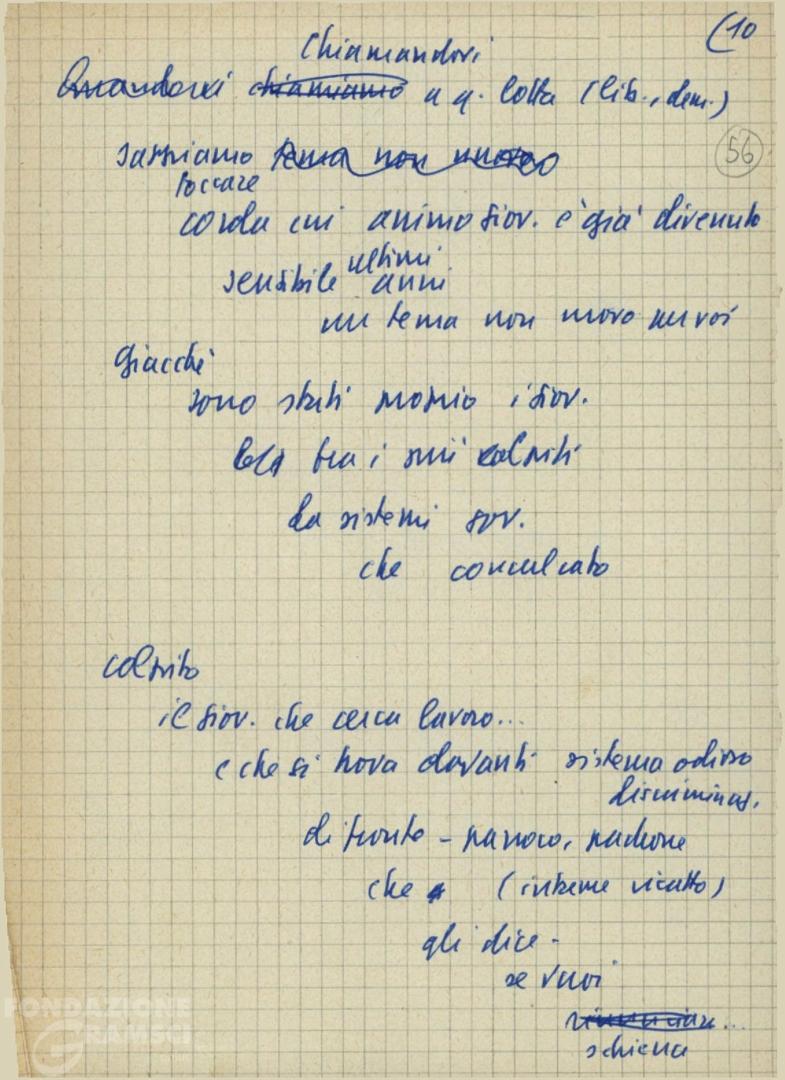 (10
Chiamandovi
chiamiamo a q. lotta (lib., dem.)
56
sappiamo tema non nuovo
toccare
corda cui animo giov. è già divenuto
sensibile ultimi anni
un tema non nuovo per voi
giacché
sono stati proprio i giov.
tra i più colpiti
da sistemi gov.
che conculcato
colpito
il giov. che cerca lavoro...
e che si trova davanti sistema odioso
discriminaz.
di fronte - parroco, padrone
che (ricatto)
gli dice -
se vuoi
rinunciare...
schiena
FONDAZIONE
GRAMSCI